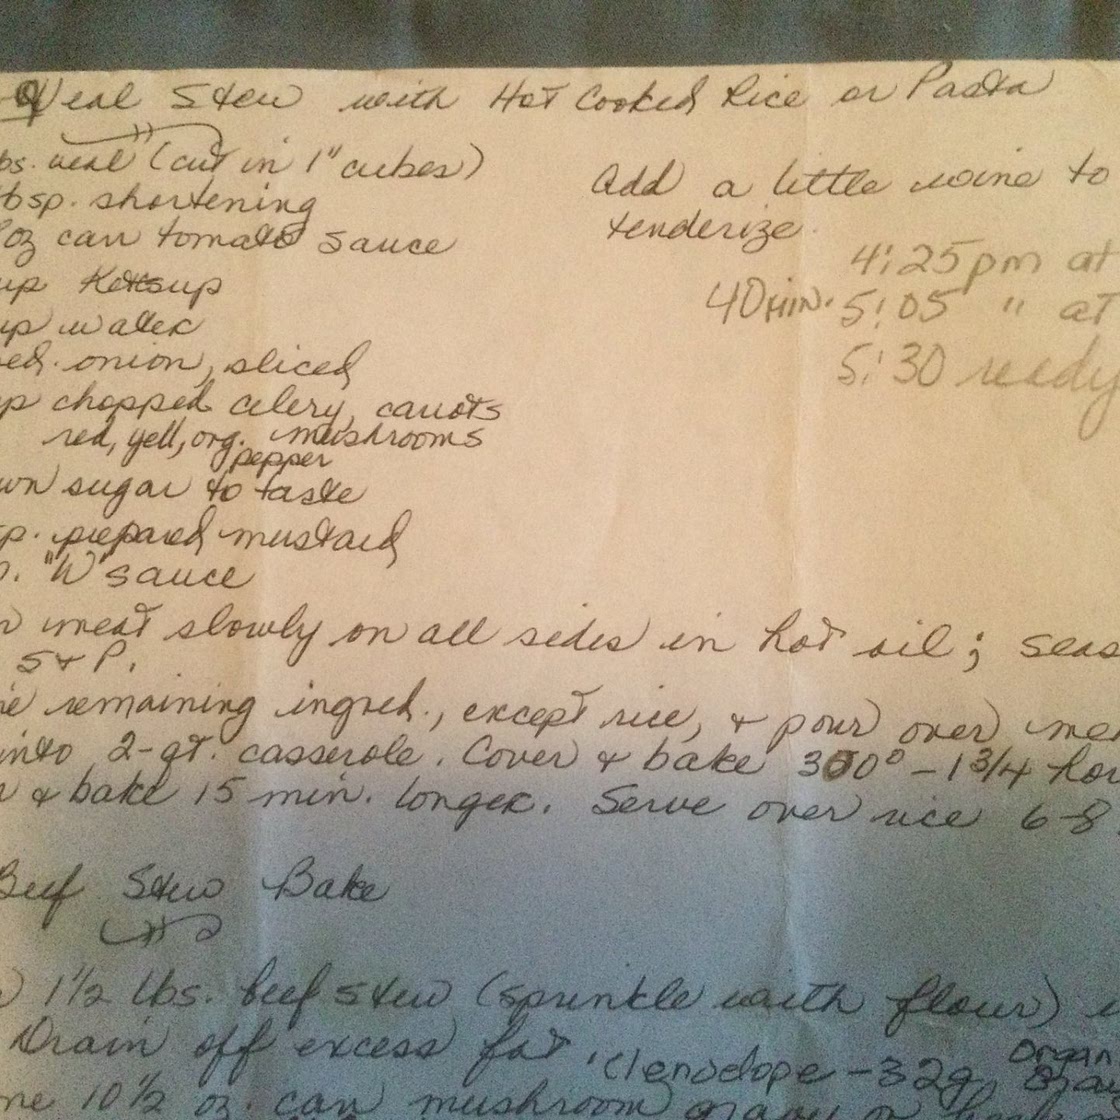 Veal Stew with Hot Cooked Rice or Pasta
bs. veal (cut in 1" cubes)
Add a little wine to
tenderize.
tbsp. shortening
oz can tomato sauce
4:25pm at
up Ketsup
40 MIN. 5:05 " at
up water
5:30 ready
ed. onion, sliced
up chopped celery, carrots
red, yell, org. mushrooms
pepper
wn sugar to taste
sp. prepared mustard
p. "W" sauce
n meat slowly on all sides in hot oil; seas
S + P.
ne remaining ingred., except rice, + pour over mea
into 2-qt. casserole. Cover + bake 300° - 1 3/4 hou
r + bake 15 min. longer. Serve over rice 6-8
Beef Stew Bake
1 1/2 lbs. beef stew (sprinkle with flour)
Drain off excess fat. (1 envelope - 32g
Organ
ne 10 1/2 oz. can mushroom gravy